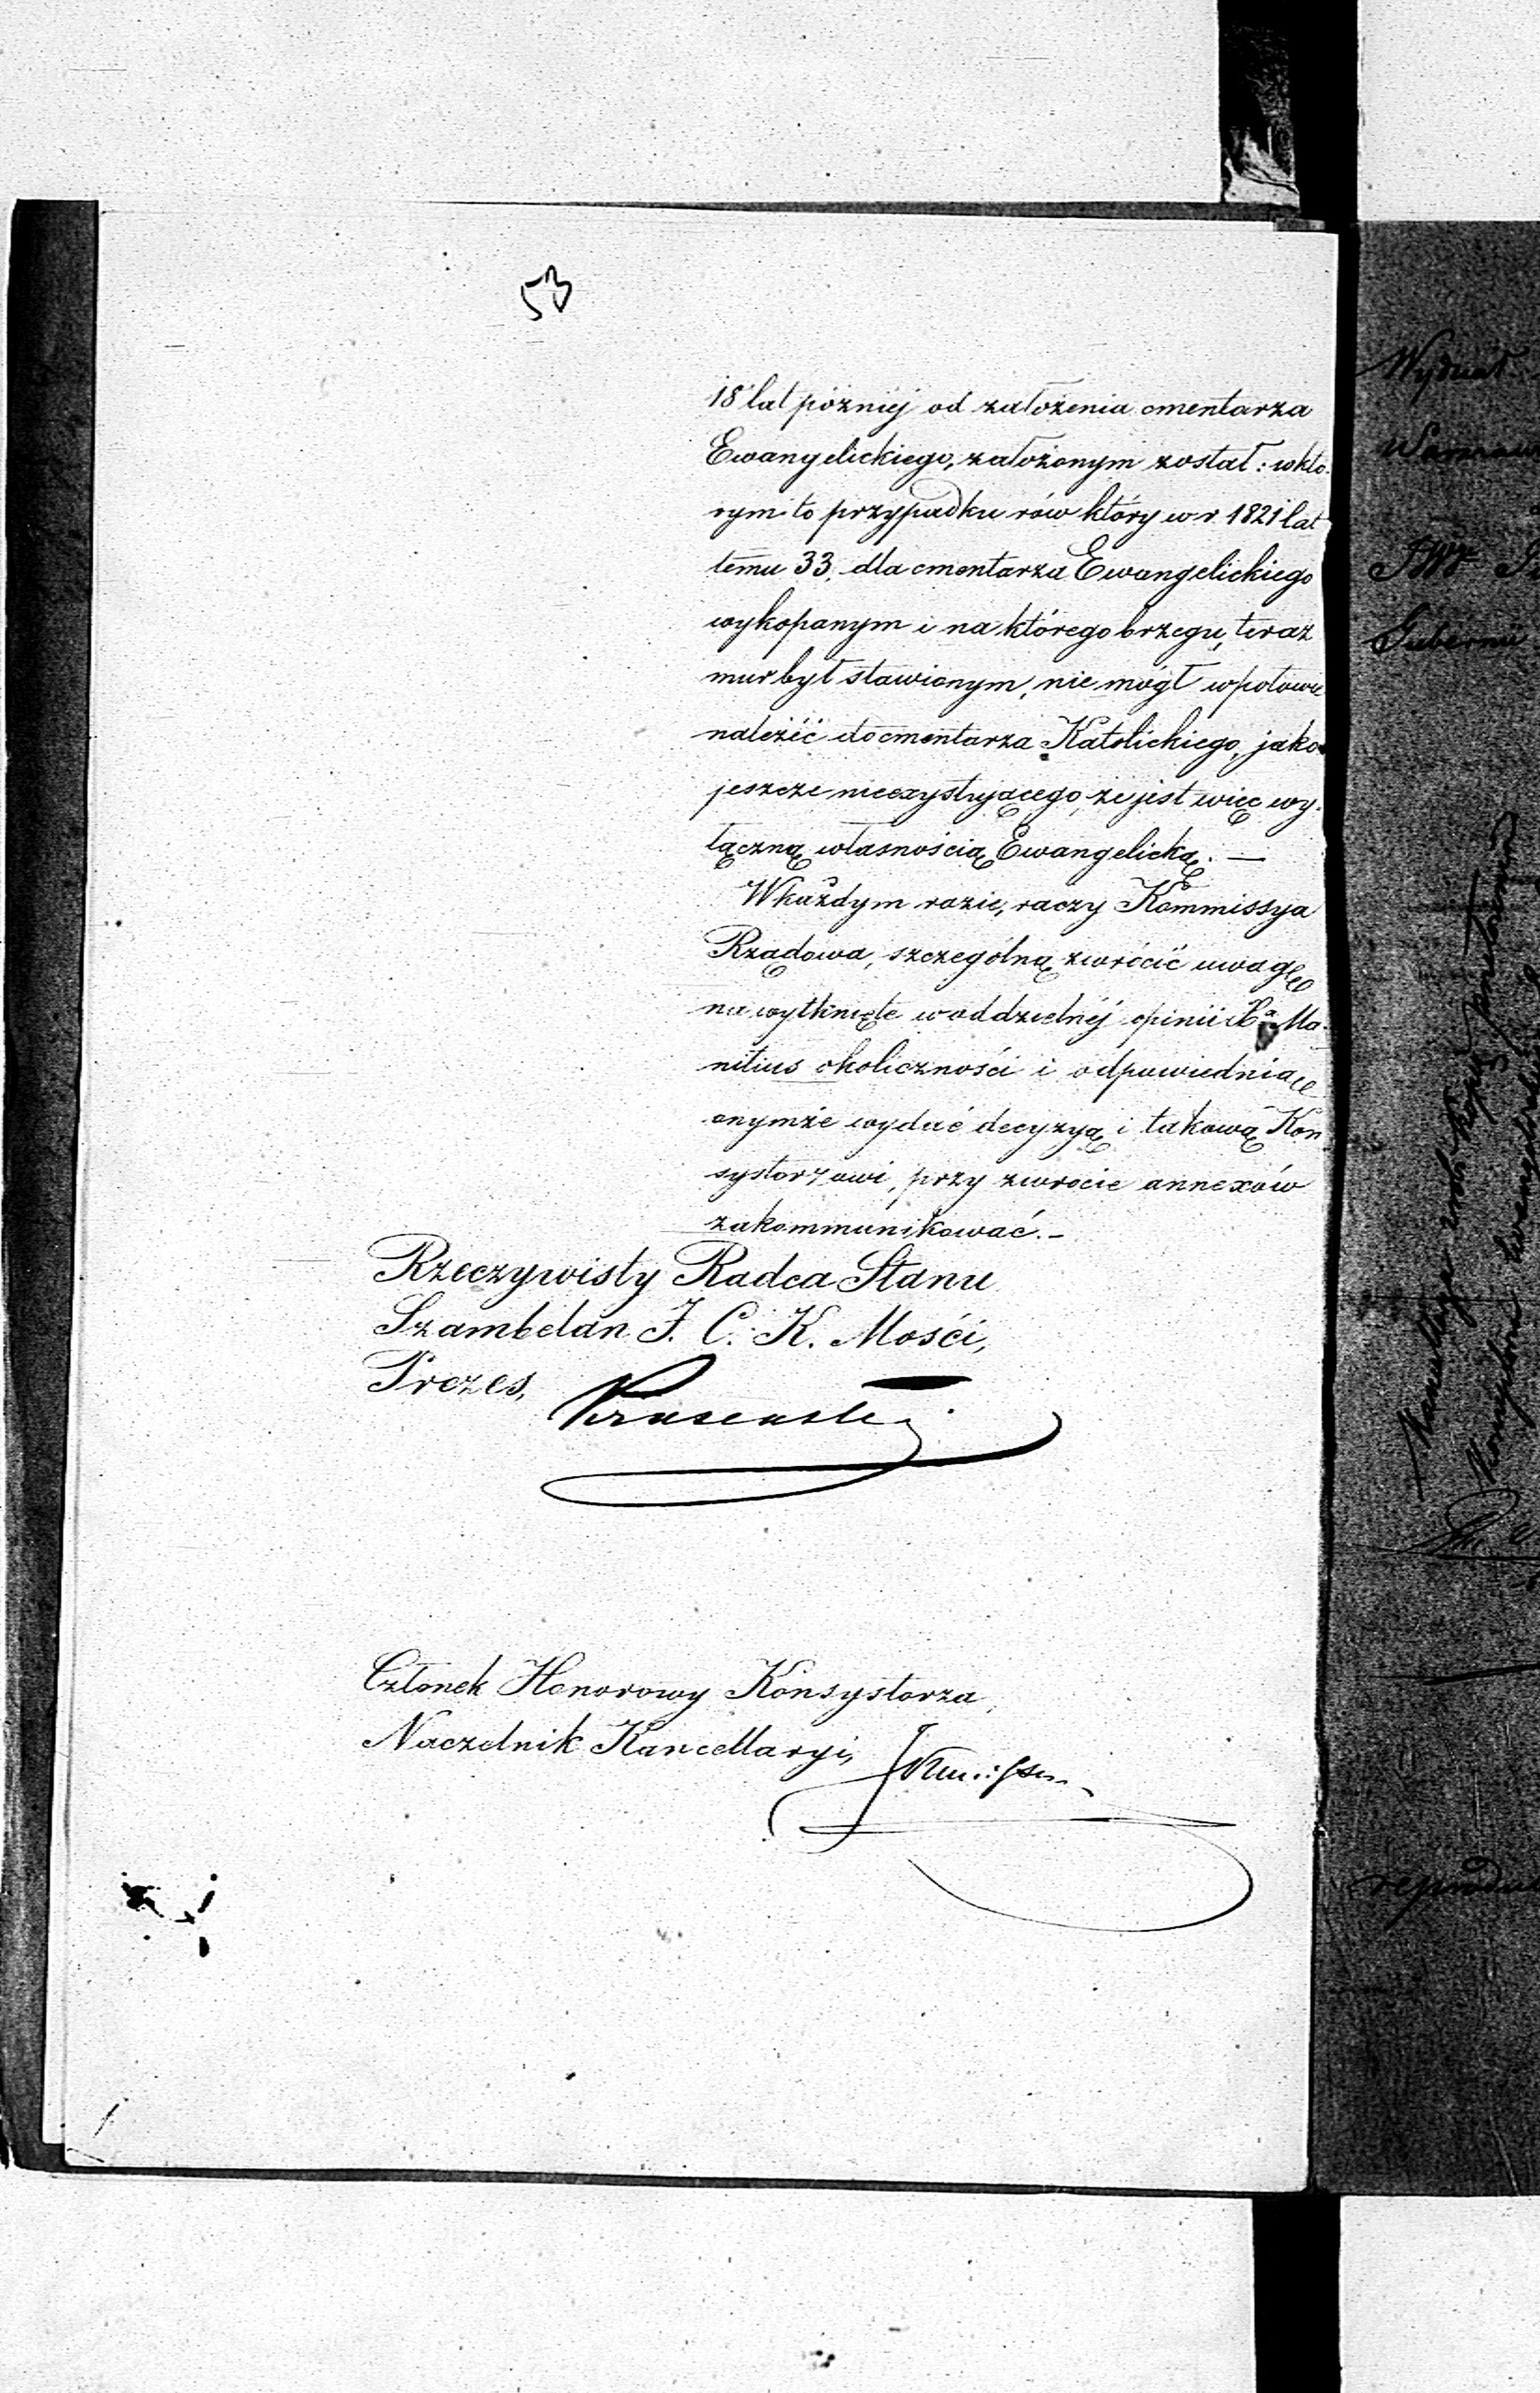 53
18 lat pózniéj od założenia cmentarza
Ewangelickiego, założonym został: w któ-
rym to przypadku rów który w r. 1821 lat
temu 33, dla cmentarza Ewangelickiego
wykopanym i na którego brzegu, teraz
mur był stawionym, nie mógł w połowie
należéć do cmentarza Katolickiego, jako
jeszcze nieexystującego, że jest więc wy-
łączną własnością Ewangelicką. —
W każdym razie, raczy Kommissya
Rządowa, szczególną zwrócić uwagę
na wytknięte w oddzielnéj opinii Xa Ma-
nitius okoliczności i odpowiednią
onymże wydać decyzyą i takową Kon-
systorzowi, przy zwrocie annexów
zakommunikować. —
Rzeczywisty Radca Stanu
Szambelan J. C. K. Mości,
Prezes,
Członek Honorowy Konsystorza,
Naczelnik Kancellaryi,
Wydział
Gubernii